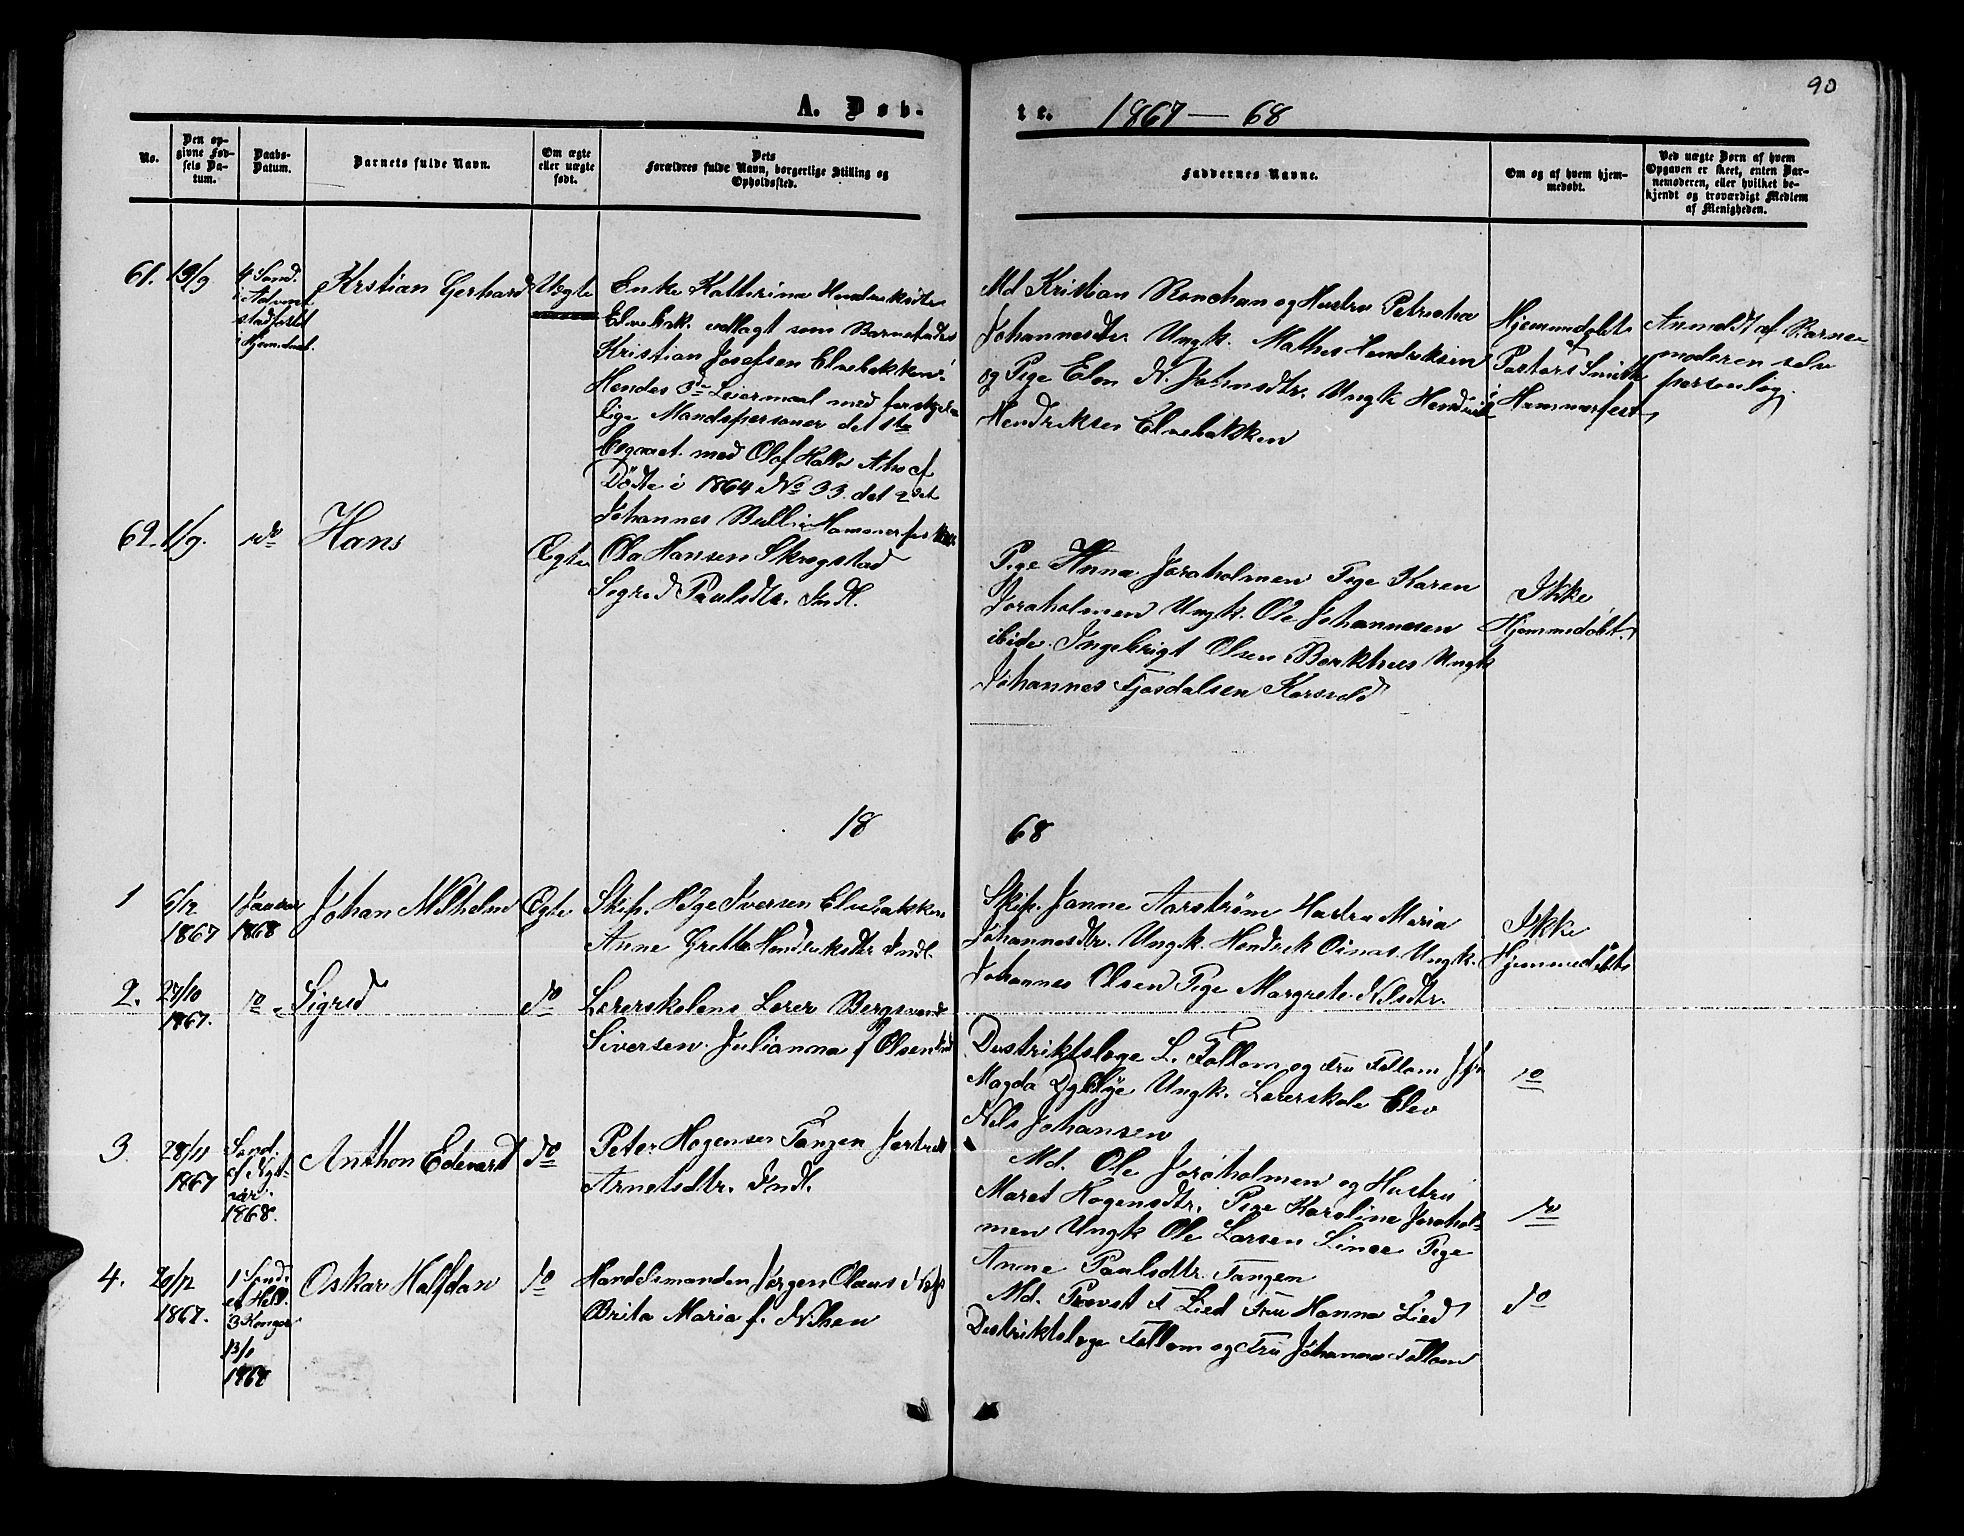 90
A. Døb-
te. 1867 - 68
No.
Den op-
givne Fød-
sels Da-
tum.
Daabs-
Datum.
Barnets fulde Navn.
Om ægte
eller uægte
født.
Dets
Forældres fulde Navn, borgerlige Stilling og
Opholdssted.
Faddernes Navne.
Om og af hvem hjem-
medøbt.
Ved uægte Børn af hvem
Opgaven er skeet, enten Bar-
nemoderen, eller hvilket be-
kjendt og troværdigt Medlem
af Menigheden.
61. 19/9
4 Sønd.
i Advent
stadfæstet
Krstian Gerhard
Uægte
Enke Katherina Hendriksdtr
Elvebak. udlagt som Barnefader
Kristian Josefsen Elvebakken.
Hendes 3die Leiermaal med forskjel-
lige Mandspersoner det 1ste
begaaet med Olof Kallo
Døbte i 1864 No 33. det 2det
Johannes Bull i Hammerfest
Md Kristian Ronchan og Hustru Petrikha
Johannesdtr Ungk. Mathis Hendriksen
og Pige Elen N. Johnsdtr. Ungk Hendrik
Hendriksen Elvebakken
Hjemmedøbt
af
Pastor Smith
i
Hammerfest
Anmeldt af Barne-
moderen selv
personlig.
62. 1/9.
do
Hans
Ægte
Ola Hansen Skrogstad
Sigrid Paulsdtr. Indl.
Pige Anna Joraholmen Pige Karen
Joraholmen Ungk. Ole Johannesen
ibide. Ingebrigt Olsen Barkhus Ungk
Johannes Fjosdalsen Korsvold
Ikke
Hjemmedøbt.
18 68
1
6/12
1867
1 Januar
1868
Johan Wilhelm
Ægte
Skip. Hege Iversen Elvebakken
Anne Gretta Hendriksdtr Indl.
Skip. Janne Aarstrøm Hustru Maria
Johannesdtr. Ungk. Hendrik Oinas Ungk.
Johannes Olsen Pige Margrete Nilsdtr.
Ikke
Hjemmedøbt
2.
27/10
1867.
do
Sigrid
do
Lærerskolens Lærer Bergsvend
Siversen. Julianna f Olsen Indl
Distriktslæge L. Follom og Fru Follom
Magda Ungk. Lærerskole Elev
Nils Johansen
do
3.
28/11
1867
Sønd.
1868.
Anthon Edevart
do
Peter Hogensen Tangen
Arnetsdtr. Indl.
Md. Ole Joraholmen og Hustru
Maret Hogensdtr. Pige Karolina Jorahol-
men Ungk Ole Larsen Pige
Anne Paulsdtr. Tangen
do
4.
20/12
1867.
1 Sønd.
3 Konger
13/1
1868
Oskar Halfdan
do
Handelsmanden Jørgen Olaus
Brita Maria f.
Md. Provst F Lied Fru Hanna Lied
Distriktslæge Follom og Fru Johanna Follom
do